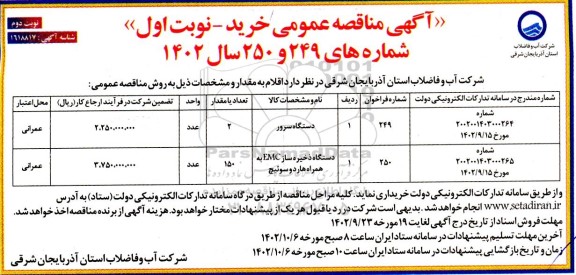 «آگهی مناقصه عمومی/خرید - نوبت اول»
شماره های ۲۴۹ و ۲۵۰ سال ۱۴۰۲
نوبت دوم
شناسه آگهی: ۱۶۱۸۸۱۷
شرکت آب و فاضلاب
استان آذربایجان شرقی
شرکت آب و فاضلاب استان آذربایجان شرقی در نظر دارد اقلام به مقدار و مشخصات ذیل به روش مناقصه عمومی:
شماره مندرج در سامانه تدارکات الکترونیکی دولت | شماره فراخوان | ردیف | نام و مشخصات کالا | تعداد یا مقدار | واحد | تضمین شرکت در فرآیند ارجاع کار (ریال) | محل اعتبار
شماره ۲۰۰۲۰۰۱۴۰۳۰۰۰۲۶۴ مورخ ۱۴۰۲/۹/۱۵ | ۲۴۹ | ۱ | دستگاه سرور | ۲ | عدد | ۲.۲۵۰.۰۰۰.۰۰۰ | عمرانی
شماره ۲۰۰۲۰۰۱۴۰۳۰۰۰۲۶۵ مورخ ۱۴۰۲/۹/۱۵ | ۲۵۰ | ۱ | دستگاه ذخیره ساز EMC به همراه هارد و سوئیچ | ۱۵۰ | عدد | ۳.۷۵۰.۰۰۰.۰۰۰ | عمرانی
و از طریق سامانه تدارکات الکترونیکی دولت خریداری نماید. کلیه مراحل مناقصه از طریق درگاه سامانه تدارکات الکترونیکی دولت (ستاد) به آدرس
www.setadiran.ir انجام خواهد شد. بدیهی است شرکت در رد یا قبول هر یک از پیشنهادات مختار خواهد بود. هزینه آگهی از برنده مناقصه اخذ خواهد شد.
مهلت فروش اسناد از تاریخ درج آگهی لغایت ۱۹ مورخه ۱۴۰۲/۹/۲۳
آخرین مهلت تسلیم پیشنهادات در سامانه ستاد ایران ساعت ۸ صبح مورخه ۱۴۰۲/۱۰/۶
زمان و تاریخ بازگشایی پیشنهادات در سامانه ستاد ایران ساعت ۱۰ صبح مورخه ۱۴۰۲/۱۰/۶
شرکت آب و فاضلاب استان آذربایجان شرقی